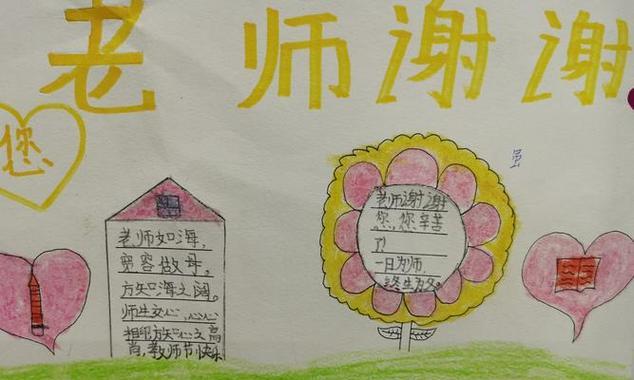 老师谢谢
您
虽
老师如海,
宽容做母。
方知海之阔。
师生交心,心心
相印方知心之高
尚,教师节快乐
老师谢谢
您,您辛苦
了!
一日为师
终生为父。